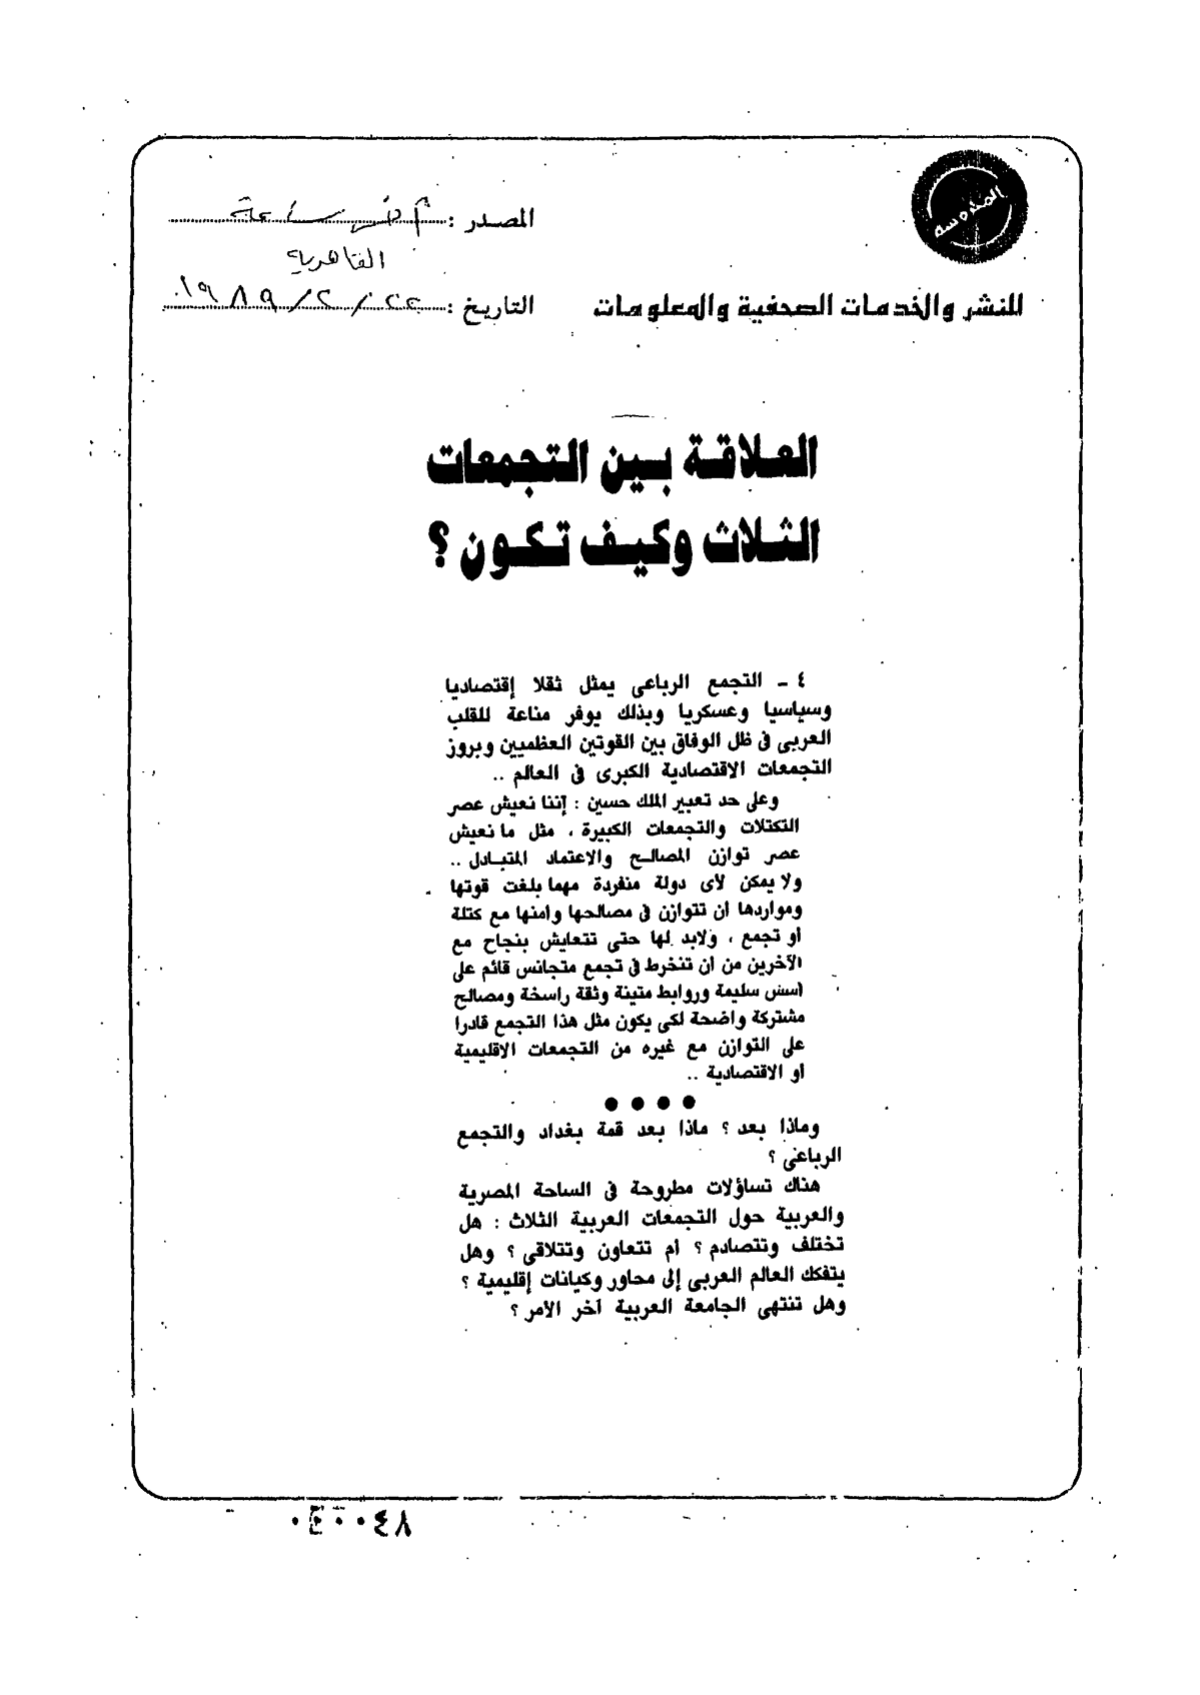 المحروسة
المصدر : آخر ساعة
القاهرية
للنشر والخدمات الصحفية والمعلومات
التاريخ : ٢٢ / ٢ / ١٩٨٩
العلاقة بين التجمعات
الثلاث وكيف تكون ؟
٤ - التجمع الرباعى يمثل ثقلا إقتصاديا
وسياسيا وعسكريا وبذلك يوفر مناعة للقلب
العربى فى ظل الوفاق بين القوتين العظميين وبروز
التجمعات الاقتصادية الكبرى فى العالم ..
وعلى حد تعبير الملك حسين : إننا نعيش عصر
التكتلات والتجمعات الكبيرة ، مثل ما نعيش
عصر توازن المصالح والاعتماد المتبادل ..
ولا يمكن لأى دولة منفردة مهما بلغت قوتها
ومواردها ان تتوازن فى مصالحها وامنها مع كتلة
او تجمع ، ولابد لها حتى تتعايش بنجاح مع
الآخرين من ان تنخرط فى تجمع متجانس قائم على
أسس سليمة وروابط متينة وثقة راسخة ومصالح
مشتركة واضحة لكى يكون مثل هذا التجمع قادرا
على التوازن مع غيره من التجمعات الاقليمية
او الاقتصادية ..
● ● ● ●
وماذا بعد ؟ ماذا بعد قمة بغداد والتجمع
الرباعى ؟
هناك تساؤلات مطروحة فى الساحة المصرية
والعربية حول التجمعات العربية الثلاث : هل
تختلف وتتصادم ؟ ام تتعاون وتتلاقى ؟ وهل
يتفكك العالم العربى إلى محاور وكيانات إقليمية ؟
وهل تنتهى الجامعة العربية آخر الأمر ؟